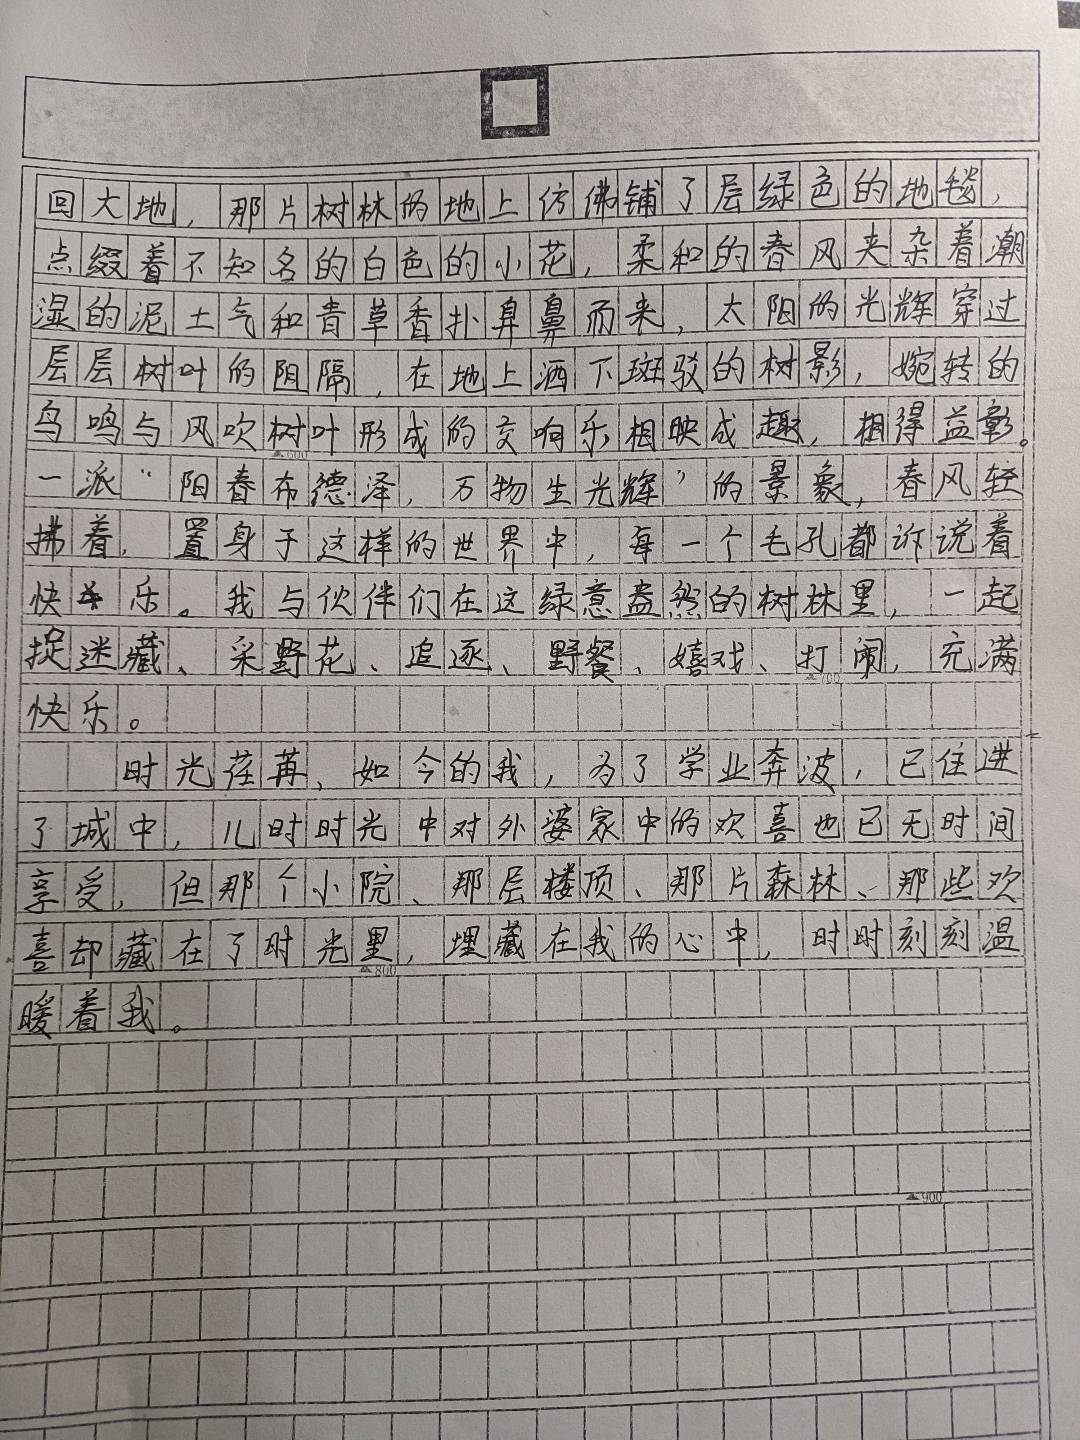 回大地，那片树林的地上仿佛铺了层绿色的地毯，
点缀着不知名的白色的小花，柔和的春风夹杂着潮
湿的泥土气和青草香扑鼻而来，太阳的光辉穿过
层层树叶的阻隔，在地上洒下斑驳的树影，婉转的
鸟鸣与风吹树叶形成的交响乐相映成趣，相得益彰。
▲600
一派“阳春布德泽，万物生光辉”的景象，春风轻
拂着，置身于这样的世界中，每一个毛孔都诉说着
快乐。我与伙伴们在这绿意盎然的树林里，一起
捉迷藏、采野花、追逐、野餐、嬉戏、打闹，充满
▲700
快乐。
时光荏苒，如今的我，为了学业奔波，已住进
了城中，儿时时光中对外婆家中的欢喜也已无时间
享受，但那个小院、那层楼顶、那片森林、那些欢
喜却藏在了时光里，埋藏在我的心中，时时刻刻温
▲800
暖着我。
▲900